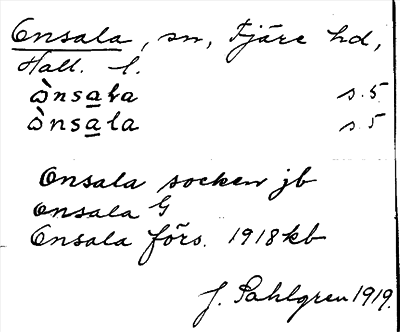 Onsala, sn, Fjäre hd,
Hall. l.
ònsala s. 5
ònsala s. 5
Onsala socken jb
Onsala G
Onsala förs. 1918 kb
J. Sahlgren 1919.